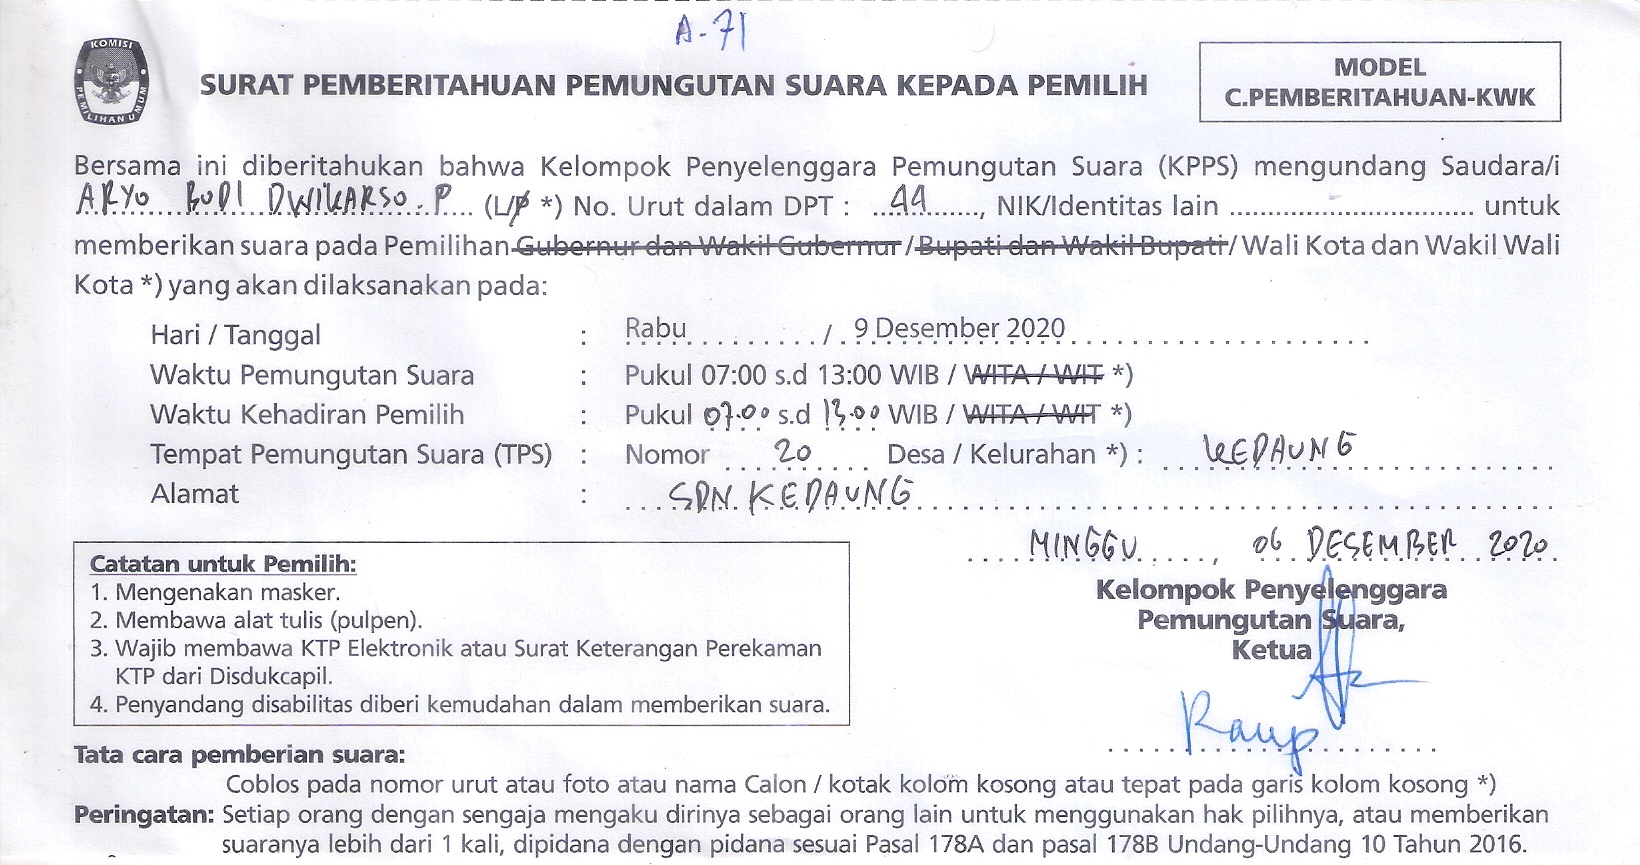 A-71
KOMISI
PEMILIHAN UMUM
SURAT PEMBERITAHUAN PEMUNGUTAN SUARA KEPADA PEMILIH
MODEL
C.PEMBERITAHUAN-KWK
Bersama ini diberitahukan bahwa Kelompok Penyelenggara Pemungutan Suara (KPPS) mengundang Saudara/i
ARYO BUDI DWIKARSO.P (L/P *) No. Urut dalam DPT : 44, NIK/Identitas lain ............ untuk
memberikan suara pada Pemilihan Gubernur dan Wakil Gubernur / Bupati dan Wakil Bupati / Wali Kota dan Wakil Wali
Kota *) yang akan dilaksanakan pada:
Hari / Tanggal : Rabu / 9 Desember 2020
Waktu Pemungutan Suara : Pukul 07:00 s.d 13:00 WIB / WITA / WIT *)
Waktu Kehadiran Pemilih : Pukul 07.00 s.d 13.00 WIB / WITA / WIT *)
Tempat Pemungutan Suara (TPS) : Nomor 20 Desa / Kelurahan *) : KEDAUNG
Alamat : SDN KEDAUNG
MINGGU, 06 DESEMBER 2020
Catatan untuk Pemilih:
1. Mengenakan masker.
2. Membawa alat tulis (pulpen).
3. Wajib membawa KTP Elektronik atau Surat Keterangan Perekaman
KTP dari Disdukcapil.
4. Penyandang disabilitas diberi kemudahan dalam memberikan suara.
Kelompok Penyelenggara
Pemungutan Suara,
Ketua
Raup
Tata cara pemberian suara:
Coblos pada nomor urut atau foto atau nama Calon / kotak kolom kosong atau tepat pada garis kolom kosong *)
Peringatan: Setiap orang dengan sengaja mengaku dirinya sebagai orang lain untuk menggunakan hak pilihnya, atau memberikan
suaranya lebih dari 1 kali, dipidana dengan pidana sesuai Pasal 178A dan pasal 178B Undang-Undang 10 Tahun 2016.